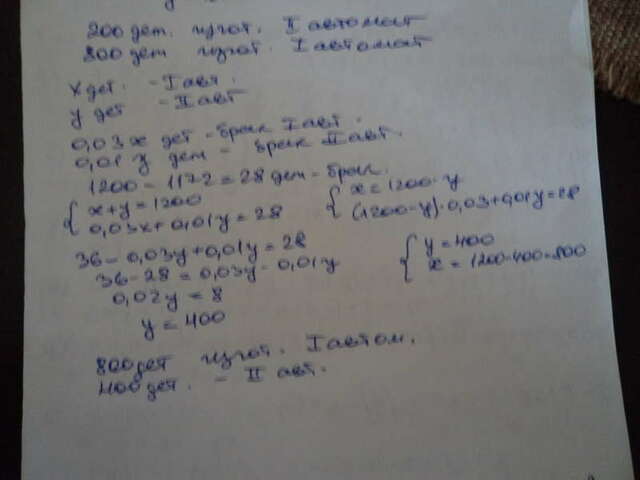 200 дет. изгот. II автомат
800 дет изгот. I автомат
х дет. - I авт.
у дет - II авт
0,03х дет - брак I авт.
0,01 у дет - брак II авт.
1200 - 1172 = 28 дет - брак.
{ х+у = 1200
0,03х + 0,01у = 28
{ х = 1200 - у
(1200-у)·0,03+0,01у=28
36 - 0,03у + 0,01у = 28
36 - 28 = 0,03у - 0,01у
0,02у = 8
у = 400
{ у = 400
х = 1200-400=800
800 дет изгот. I автом.
400 дет. - II авт.